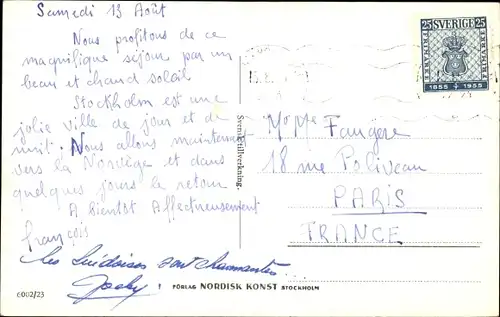 Samedi 13 Août
Nous profitons de ce
magnifique séjour par un
beau et chaud soleil
Stockholm est une
jolie ville de jour et de
nuit. Nous allons maintenant
vers la Norvège et dans
quelques jours le retour
A bientôt Affectueusement
françois
les Suédoises sont charmantes...
Jacky !
6002/23
FÖRLAG NORDISK KONST STOCKHOLM
Svensk tillverkning.
25 SVERIGE 25
FRIMÄRKET
100 ÅR
1855 1955
Faugere
18 rue Poliveau
PARIS
FRANCE